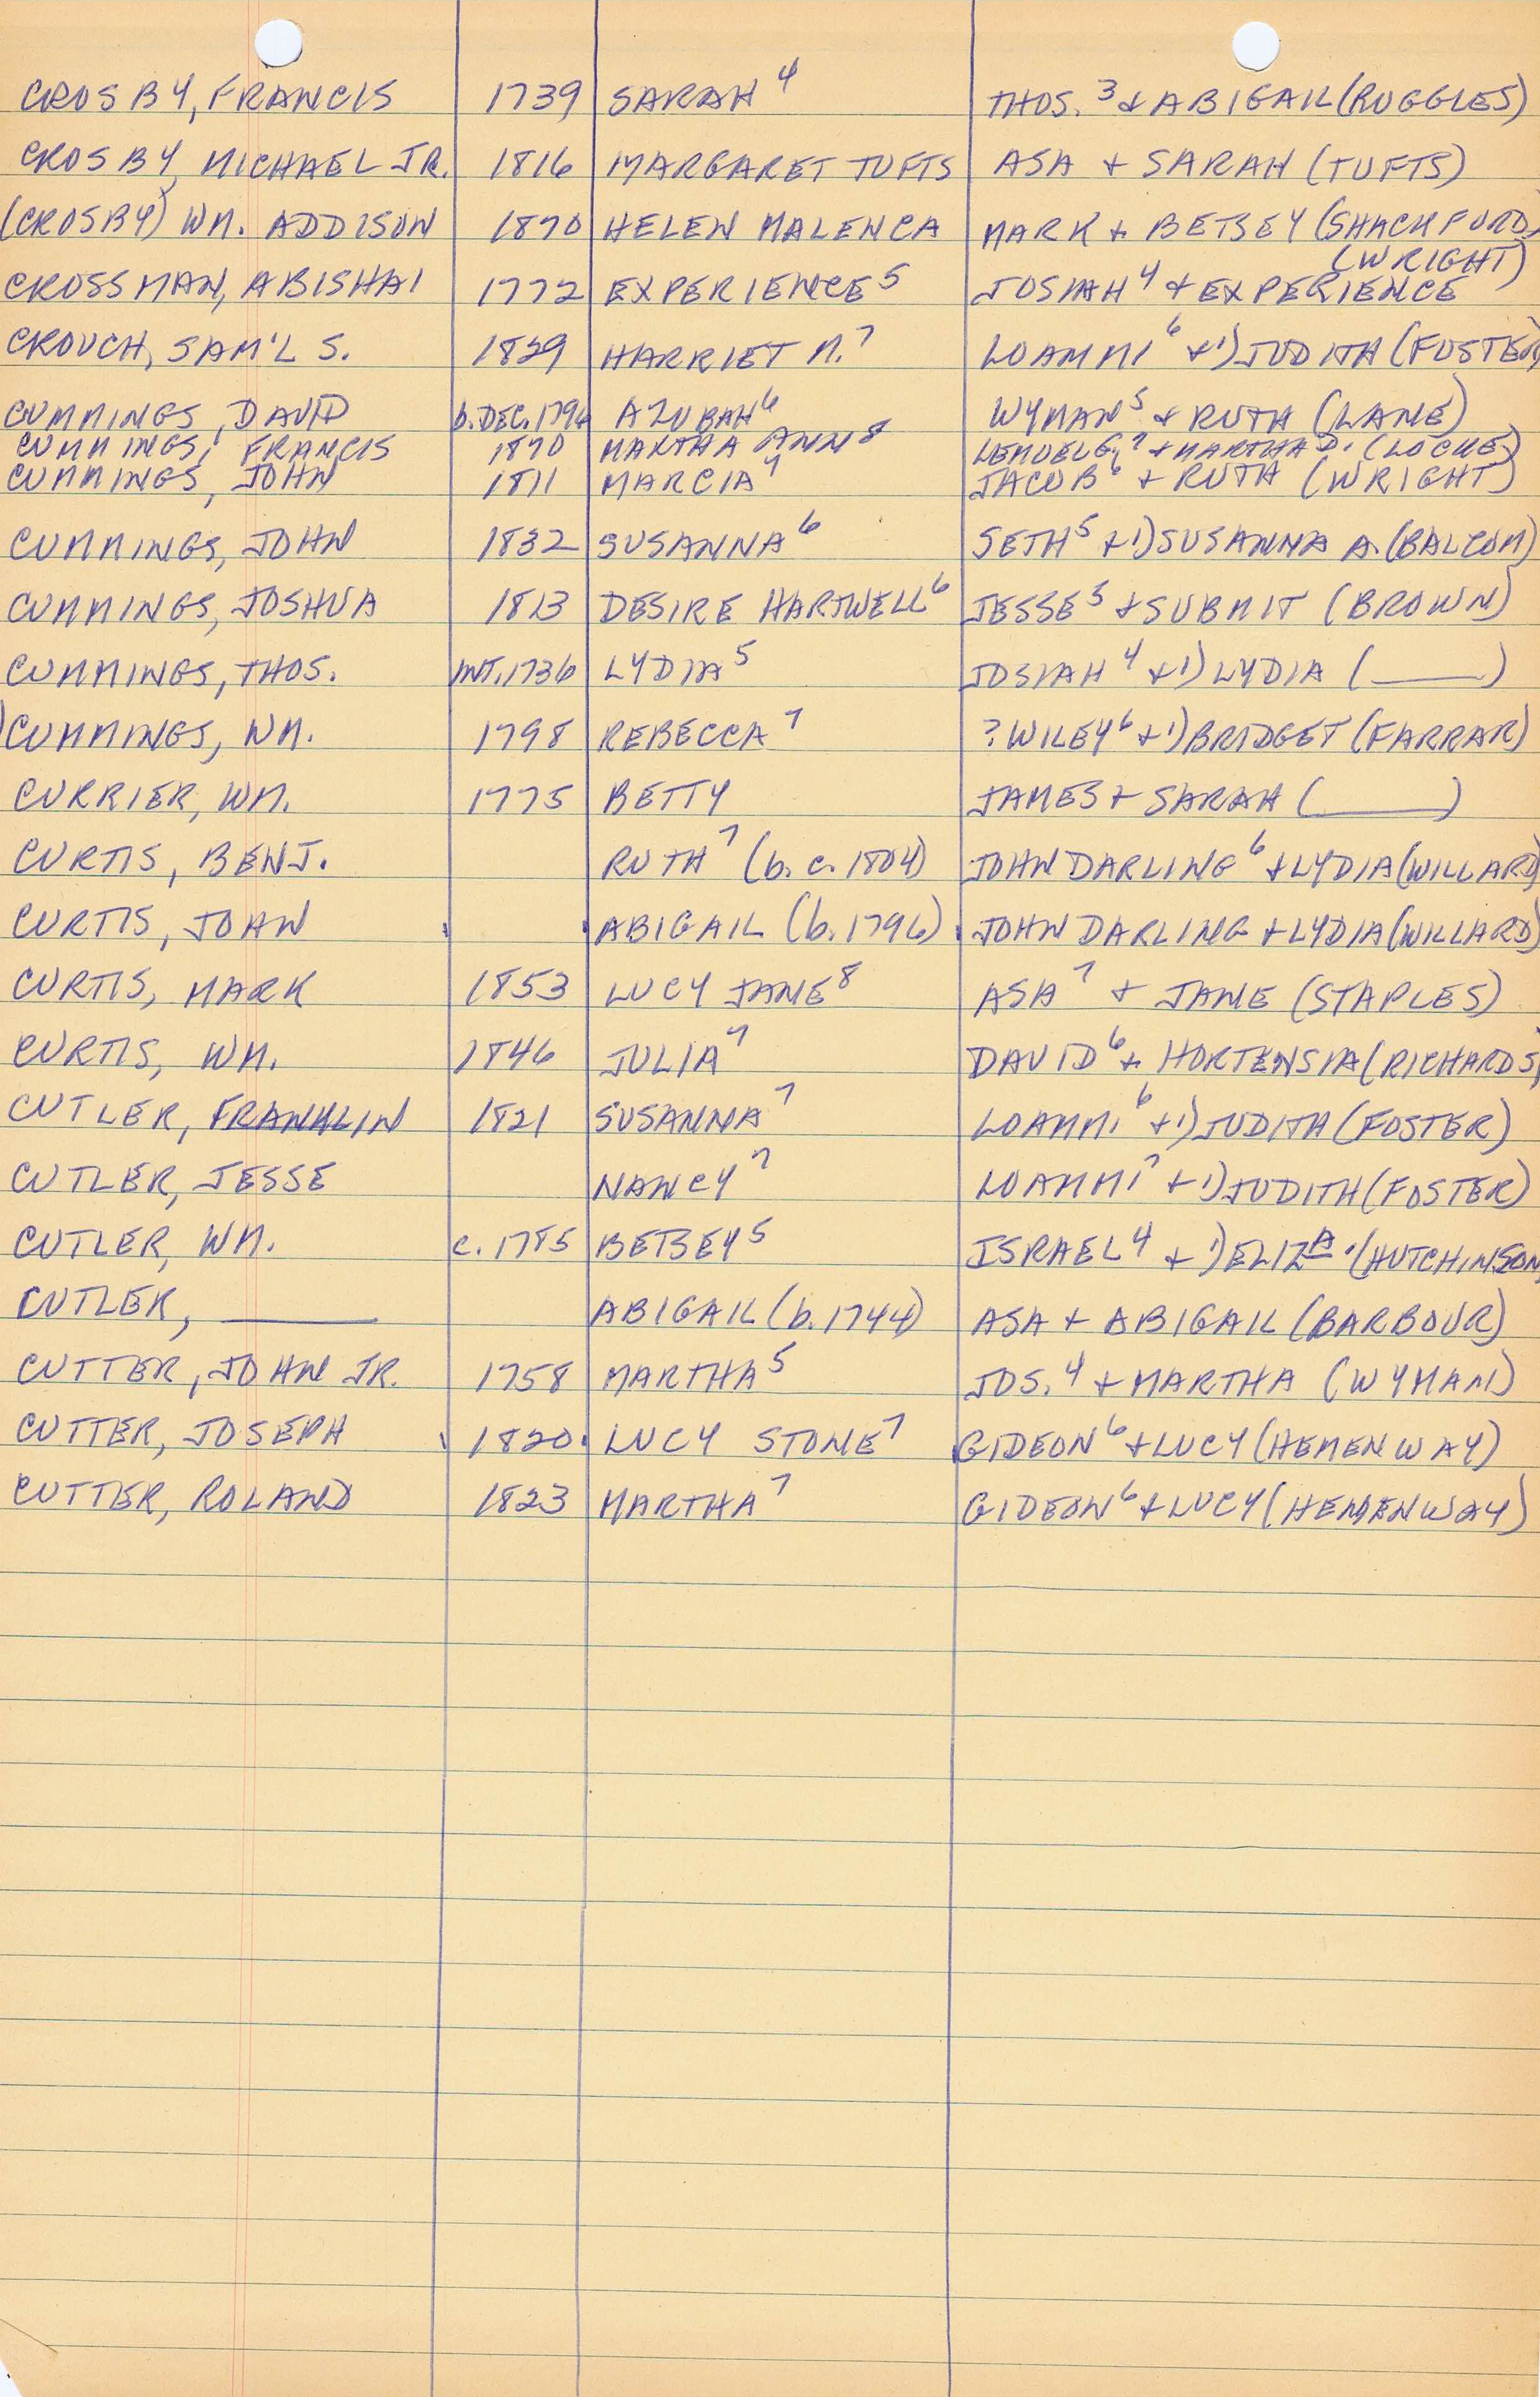 CROSBY, FRANCIS 1739 SARAH 4 THOS. 3 + ABIGAIL (RUGGLES)
CROSBY, MICHAEL JR. 1816 MARGARET TUFTS ASA + SARAH (TUFTS)
(CROSBY) WM. ADDISON 1870 HELEN MALENCA MARK + BETSEY (SHACKFORD)
(WRIGHT)
CROSSMAN, ABISHAI 1772 EXPERIENCE 5 JOSIAH 4 + EXPERIENCE
CROUCH, SAM'L S. 1829 HARRIET N. 7 LOAMMI 6 + 1) JUDITH (FOSTER)
CUMMINGS, DAVID b. DEC. 1796 AZUBAH 6 WYMAN 5 + RUTH (LANE)
CUMMINGS, FRANCIS 1870 MARTHA ANN 8 LEMUEL G. 7 + MARTHA D. (LOCKE)
CUMMINGS, JOHN 1811 MARCIA 7 JACOB 6 + RUTH (WRIGHT)
CUMMINGS, JOHN 1832 SUSANNA 6 SETH 5 + 1) SUSANNA A. (BALCOM)
CUMMINGS, JOSHUA 1813 DESIRE HARTWELL 6 JESSE 5 + SUBMIT (BROWN)
CUMMINGS, THOS. INT. 1736 LYDIA 5 JOSIAH 4 + 1) LYDIA (____)
CUMMINGS, WM. 1798 REBECCA 7 ? WILEY 6 + 1) BRIDGET (FARRAR)
CURRIER, WM. 1775 BETTY JAMES + SARAH (____)
CURTIS, BENJ. RUTH 7 (b. c. 1804) JOHN DARLING 6 + LYDIA (WILLARD)
CURTIS, JOHN ABIGAIL (b. 1796) JOHN DARLING + LYDIA (WILLARD)
CURTIS, MARK 1853 LUCY JANE 8 ASA 7 + JANE (STAPLES)
CURTIS, WM. 1846 JULIA 7 DAVID 6 + HORTENSIA (RICHARDS)
CUTLER, FRANKLIN 1821 SUSANNA 7 LOAMMI 6 + 1) JUDITH (FOSTER)
CUTLER, JESSE NANCY 7 LOAMMI 7 + 1) JUDITH (FOSTER)
CUTLER, WM. c. 1785 BETSEY 5 ISRAEL 4 + 1) ELIZA. (HUTCHINSON
CUTLER, ____ ABIGAIL (b. 1744) ASA + ABIGAIL (BARBOUR)
CUTTER, JOHN JR. 1758 MARTHA 5 JOS. 4 + MARTHA (WYMAN)
CUTTER, JOSEPH 1820 LUCY STONE 7 GIDEON 6 + LUCY (HEMENWAY)
CUTTER, ROLAND 1823 MARTHA 7 GIDEON 6 + LUCY (HEMENWAY)